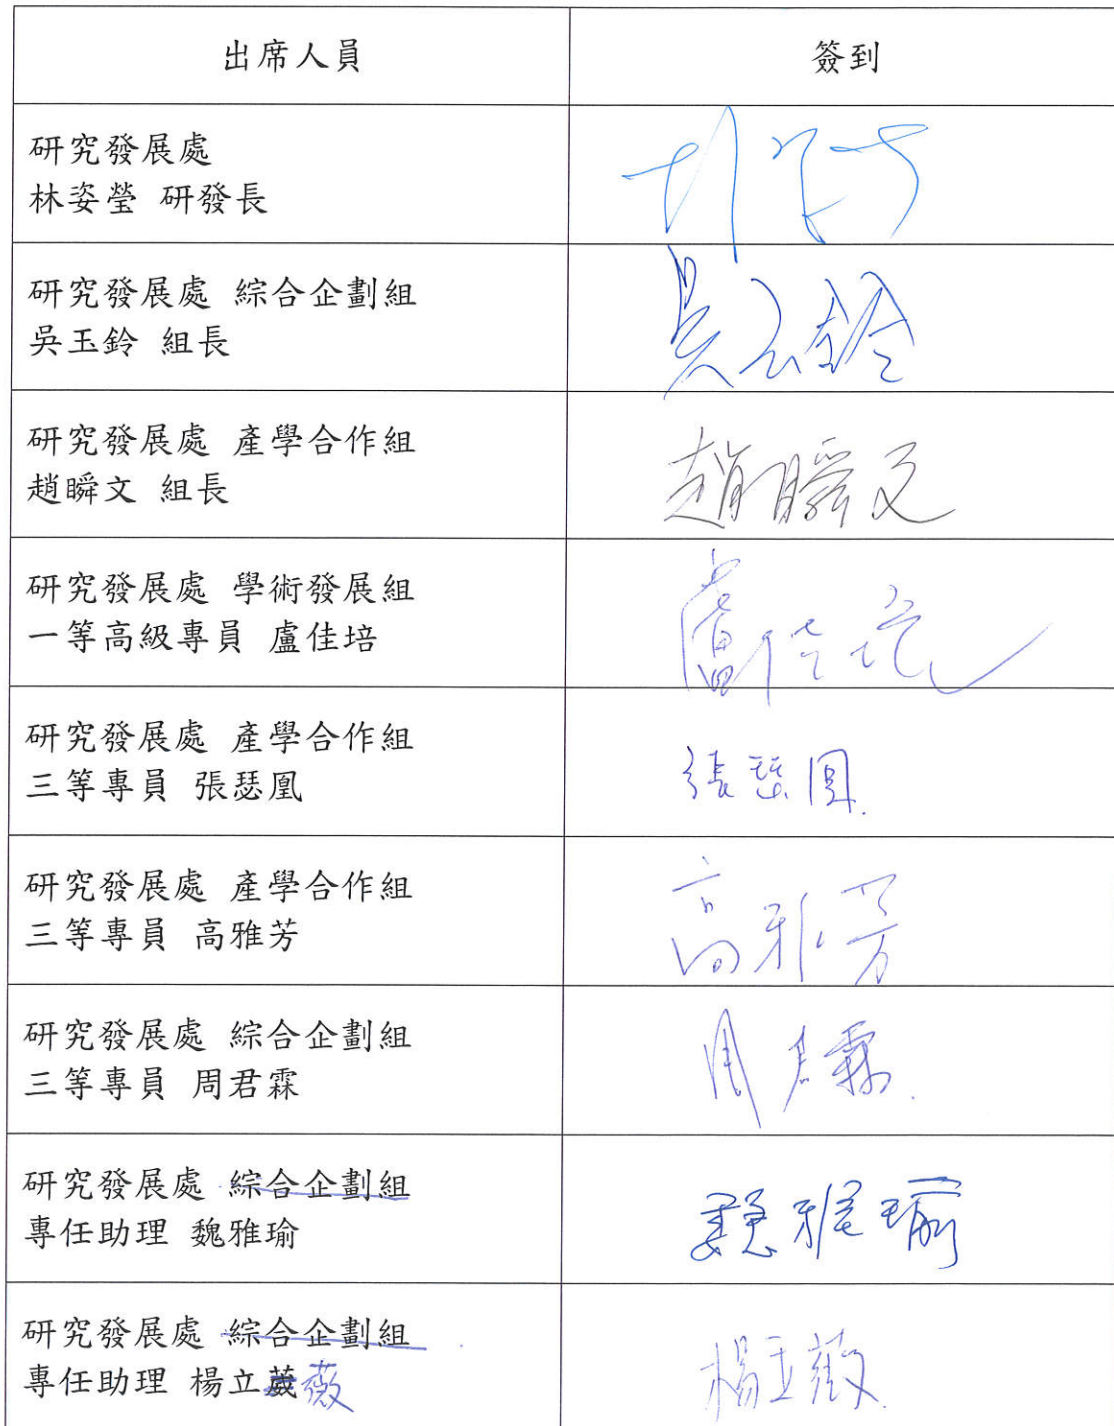 出席人員
簽到
研究發展處
林姿瑩 研發長
研究發展處 綜合企劃組
吳玉鈴 組長
吳玉鈴
研究發展處 產學合作組
趙瞬文 組長
趙瞬文
研究發展處 學術發展組
一等高級專員 盧佳培
盧佳培
研究發展處 產學合作組
三等專員 張瑟凰
張瑟凰
研究發展處 產學合作組
三等專員 高雅芳
高雅芳
研究發展處 綜合企劃組
三等專員 周君霖
周君霖
研究發展處 綜合企劃組
專任助理 魏雅瑜
魏雅瑜
研究發展處 綜合企劃組
專任助理 楊立葳薇
楊立薇